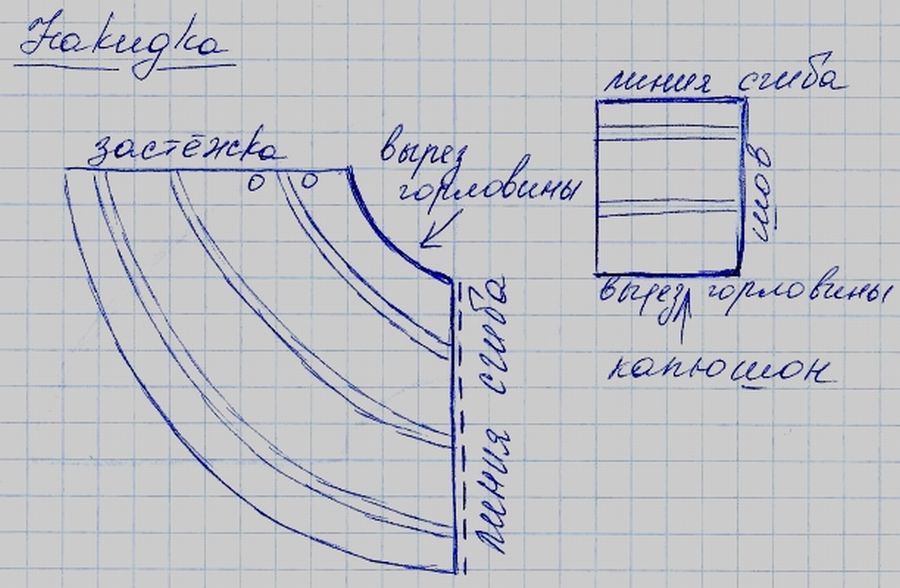 Накидка
застёжка
вырез
горловины
линия сгиба
линия сгиба
шов
вырез горловины
капюшон